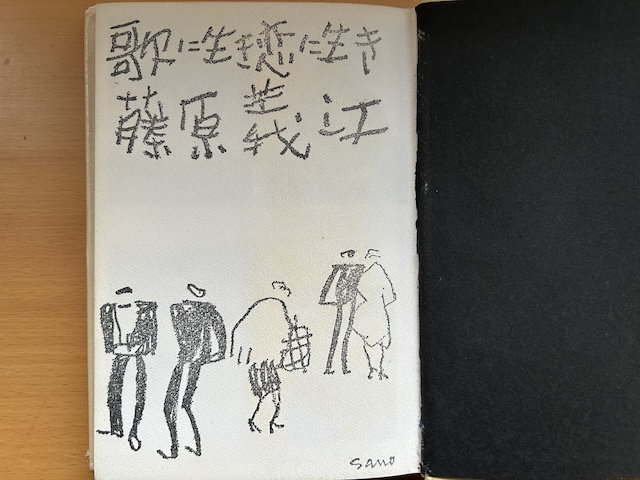 歌に生き恋に生き
藤原義江
sano